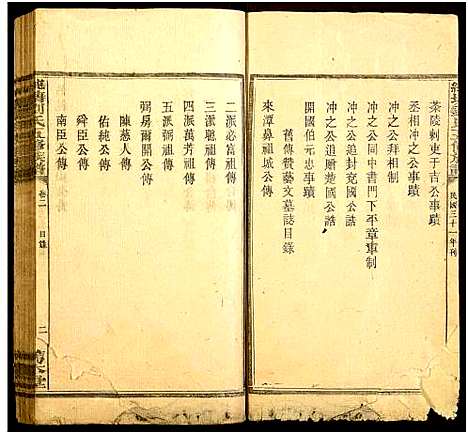 茶陵刺吏于吉公事蹟
丞相冲之公事蹟
冲之公拜相制
冲之公同中書門下平章軍制
冲之公追封兗國公誥
冲之公追贈楚國公誥
開國伯元忠事蹟
舊傳贊藝文墓誌目錄
來潭鼻祖城公傳
民國三十一年刊
二派必富祖傳
三派聰祖傳
四派萬芳祖傳
五派添祖傳
弼房爾開公傳
陳慈人傳
佑純公傳
舜臣公傳
南臣公傳
卷二
目錄
二